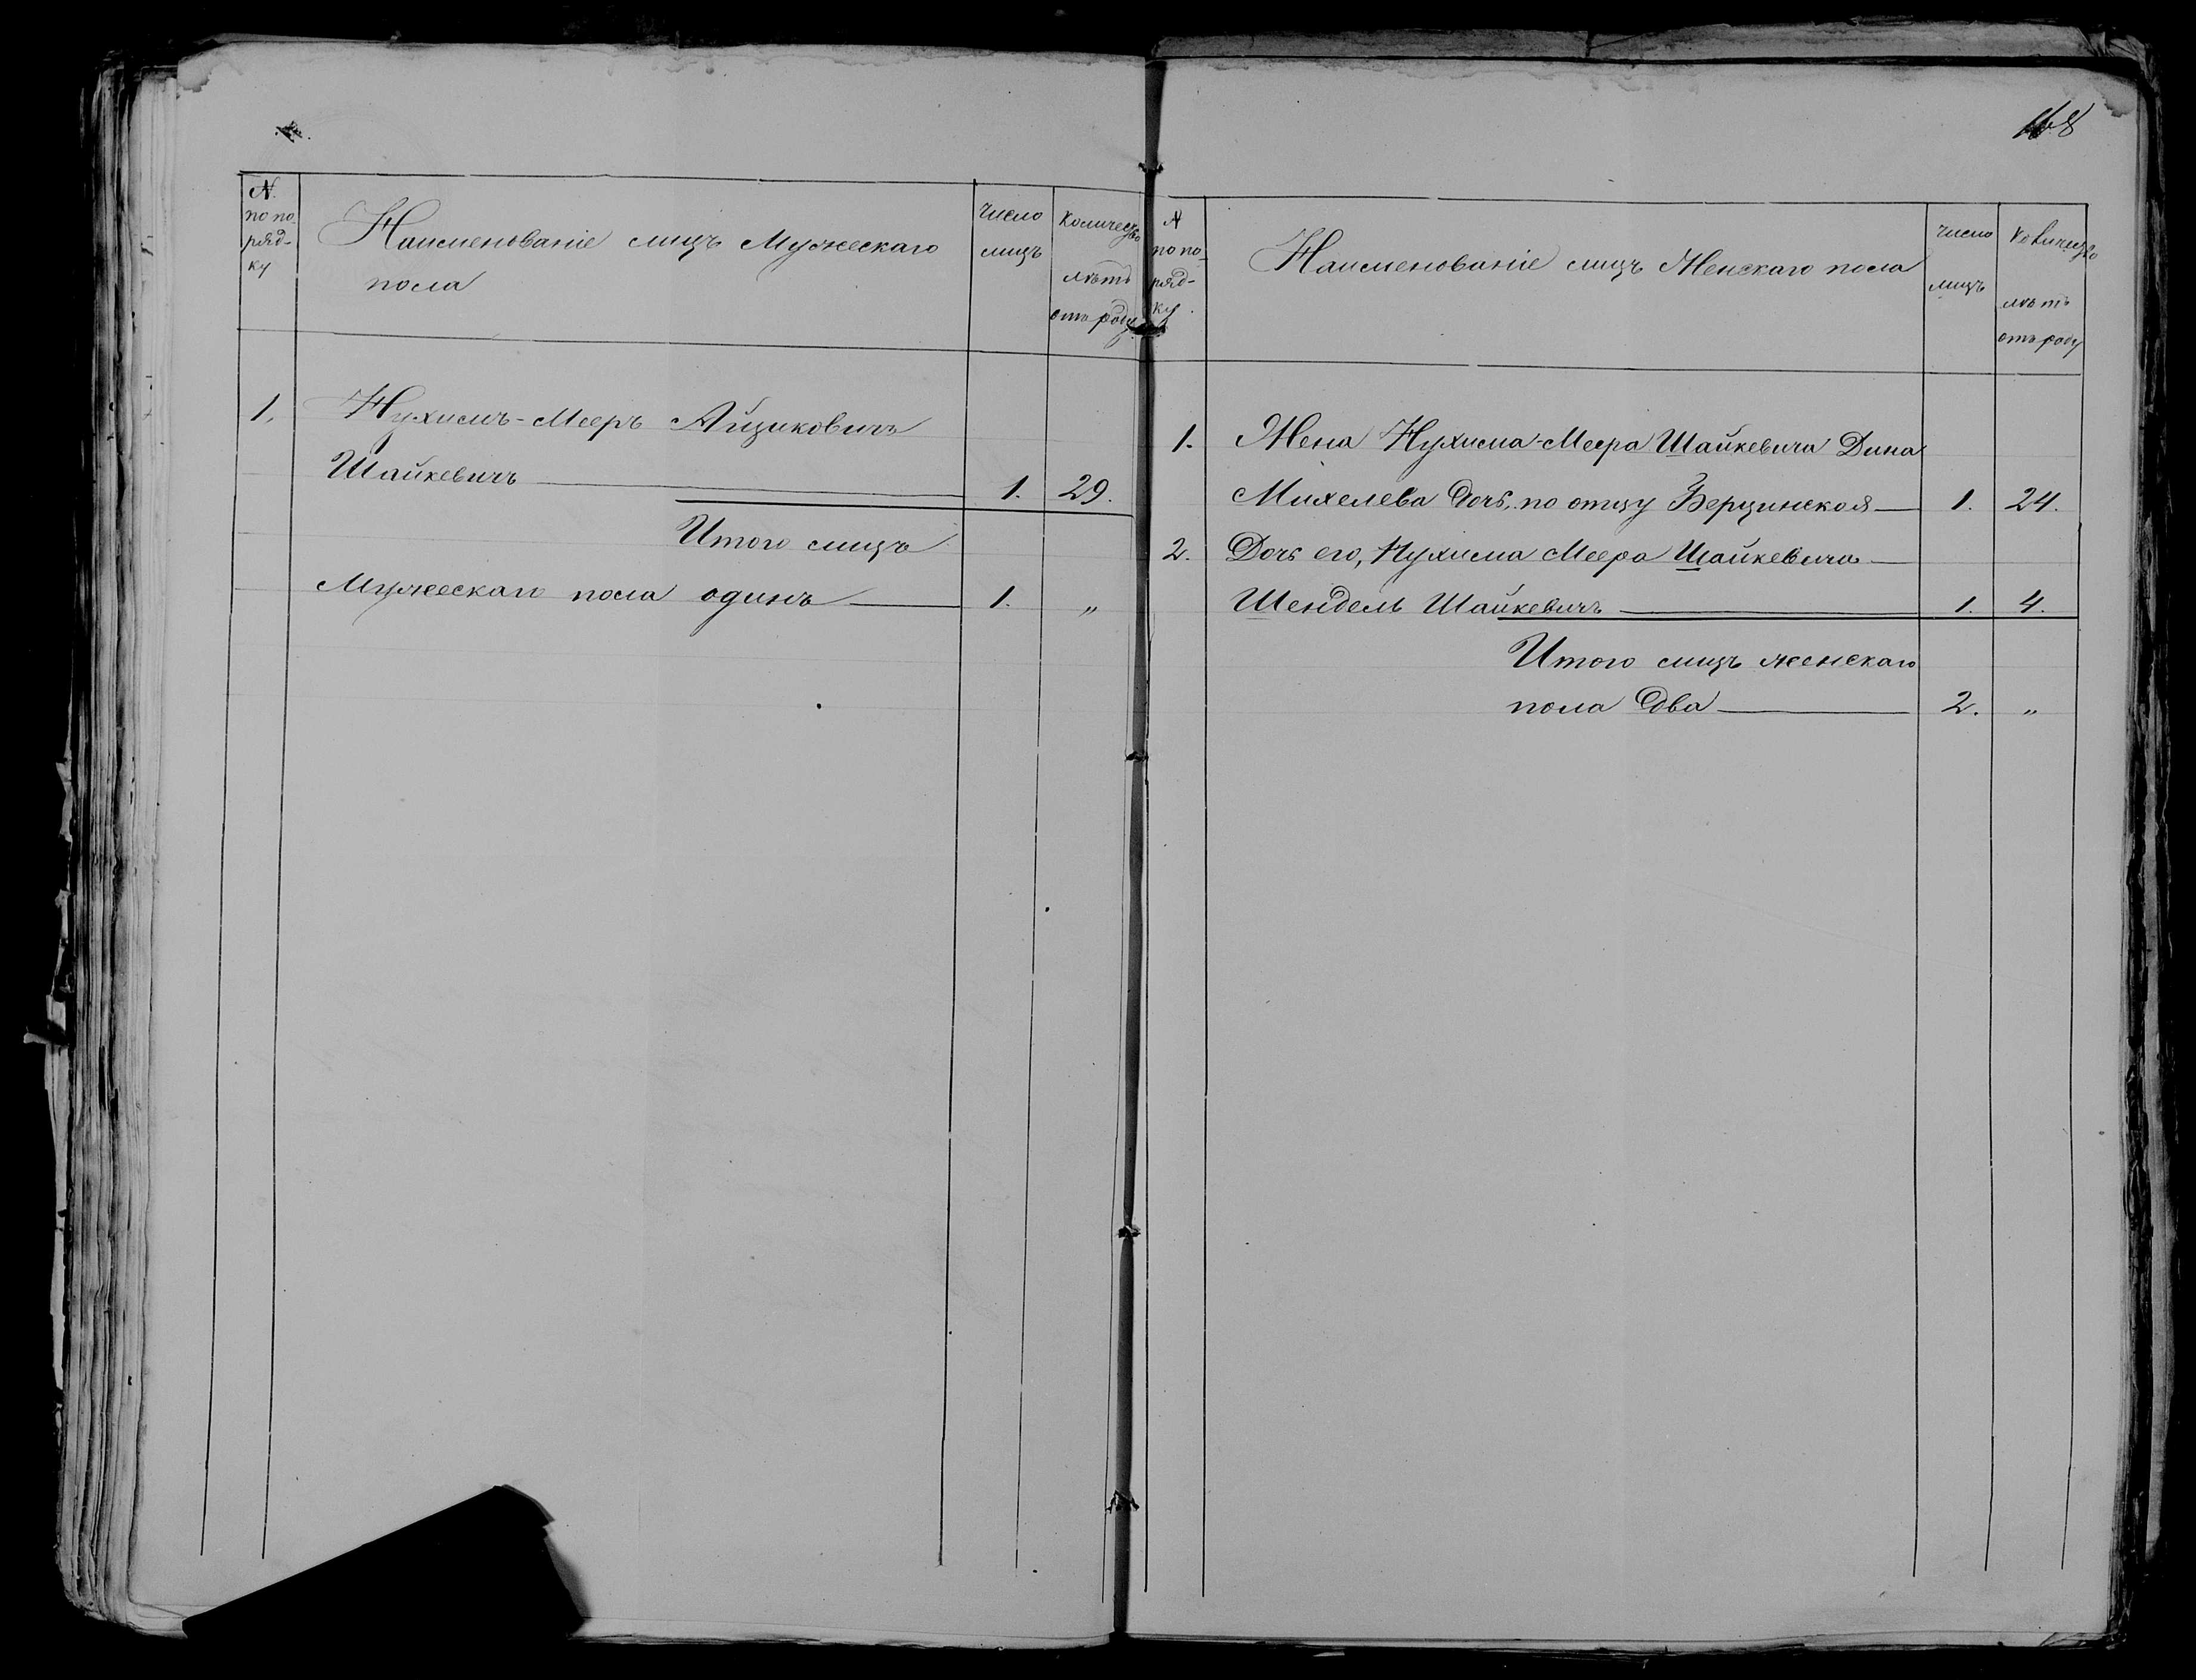 N.
по по-
ряд-
ку
Наименованіе лицъ Мужескаго
пола
Число
лицъ
Количество
лѣтъ
отъ роду.
1. Нухимъ-Мееръ Айзиковичъ
Шайкевичъ 1. 29.
Итого лицъ
Мужескаго пола одинъ 1. „
168
N
по по-
ряд-
ку.
Наименованіе лицъ Женскаго пола
Число
лицъ
Количество
лѣтъ
отъ роду
1. Жена Нухима-Меера Шайкевича Дина
Михелева дочь, по отцу Берцинская 1. 24.
2. Дочь его, Нухима Меера Шайкевича
Шендель Шайкевичъ 1. 4.
Итого лицъ женскаго
пола два 2. „